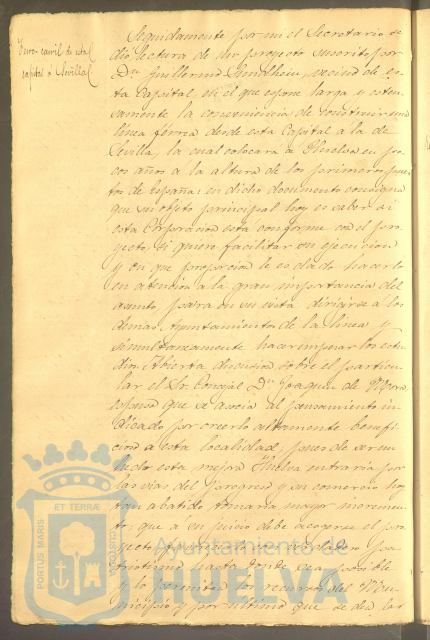 Ferro-carril de esta
capital á Sevilla
Seguidamente por mi el Secretario se
dio lectura de un proyecto suscrito por
Dn Guillermo Sundheim, vecino de es-
ta Capital, en el que espone larga y esten-
samente la conveniencia de construir una
linea ferrea desde esta Capital a la de
Sevilla, la cual colocará a Huelva en po-
cos años a la altura de los primeros puer-
tos de España: en dicho documento consigna
que su objeto principal hoy es saber si
esta Corporacion está conforme con el pro-
yecto, si quiere facilitar su ejecucion
y en que proporcion le es dado hacerlo
en atencion á la gran importancia del
asunto, para en su vista dirigirse a los
demas Ayuntamientos de la linea y
simultaneamente hacer empezar los estu-
dios. Abierta discusion sobre el particu-
lar el Sr. Concejal Dn Joaquin de Mora
espuso que se asocia al pensamiento in-
dicado por creerlo altamente benefi-
cioso a esta localidad, pues de ser un
hecho esta mejora Huelva entraria por
las vias del Progreso y su comercio hoy
tan abatido tomaria mayor incremen-
to; que a su juicio debe acogerse el pro-
yecto y ofrecer con verdadero pa-
triotismo hasta donde sea posible
y lo permitan los recursos del Mu-
nicipio y por ultimo que se den las
PORTUS MARIS ET TERRÆ CUSTODIA
Ayuntamiento de
HUELVA